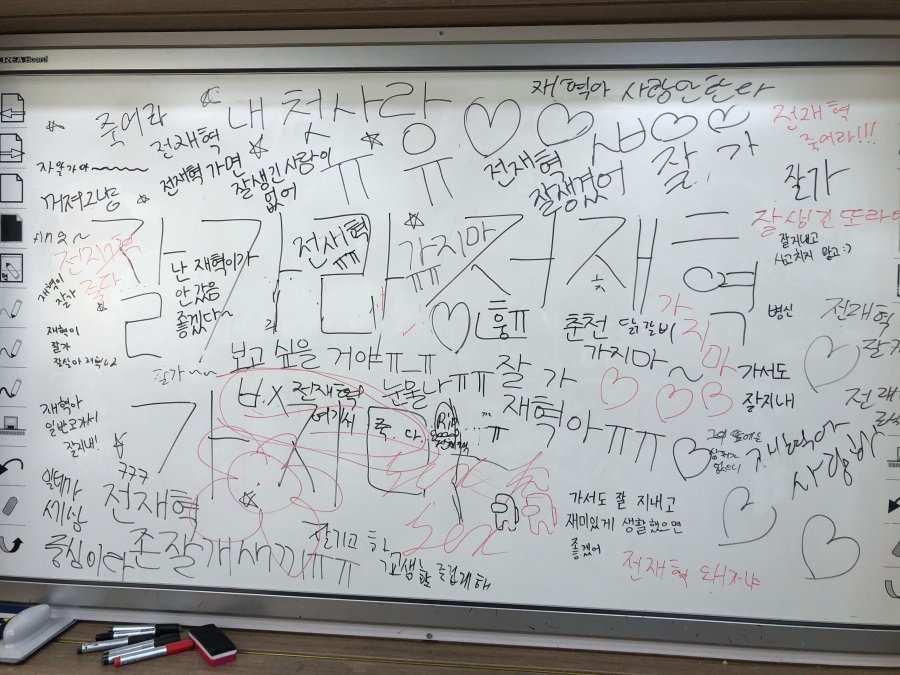 REA Board
재혁아 사랑안한다
죽어라
내 첫사랑
전재혁
죽어라!!!
전재혁
ㅠ
유
전재혁
잘생겼어
잘 가
잘가
전재혁 가면
잘생긴 사람이
없어
잘생긴 또라이
잘지내고
사고치지 말고 :)
잘가람
가지마
ㅠㅠ
전재혁
난 재혁이가
안갔음
좋겠다~
재혁이
잘가
재혁이
잘가
훙ㅠ
춘천 닭갈비
가지마~
가지마
병신
전재혁
잘가
보고 싶을 거야ㅠㅡㅠ
잘 가
가서도
잘지내
전재혁
여기서
눈물나ㅠㅠ
죽다
Rip
전재혁
재혁아ㅠㅠ
가지
재혁아
일반고가서
잘지내!
사랑해
777
전재혁
중심이다
존잘개새끼ㅠㅠ
고생한 즐겁게해
Sex
가서도 잘 지내고
재미있게 생활했으면
좋겠어
전재혁 돼지야